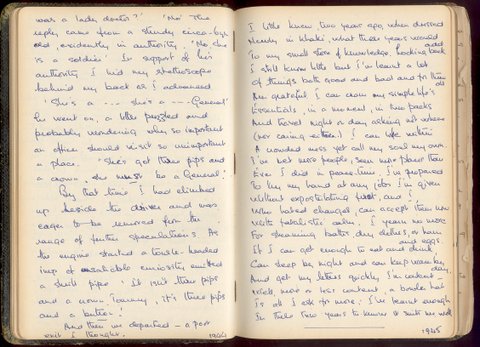 was a lady doctor?" "No" The
reply came from a sturdy
old, evidently in authority. "No she
is a soldier" In support of his
authority I hid my stethoscope
behind my back as I advanced
"She's a --- she's a --- General"
he went on, a little puzzled and
probably wondering why so important
an officer should visit so unimportant
a place. "She's got three pips and
a crown, she must be a General."
By that time I had climbed
up beside the driver and was
eager to be removed from the
range of further speculations. As
the engine started a tousle-headed
imp of insatiable curiosity emitted
a shrill pipe "It isn't three pips
and a crown Tommy, it's three pips
and a button!"
And then we departed - a poor
exit I thought. 1944
I little knew two years ago, when dressed
Newly in khaki, what these years would add
To my small store of knowledge, looking back
I still know little but I've learnt a lot
Of things both good and bad and for them all
Am grateful. I can cram my simple life's
Essentials, in a moment, in two packs
And travel night or day asking not where
(nor caring either!) I can live within
A crowded mess yet call my soul my own.
I've met more people, seen more places than
Ever I did in peace-time. I'm prepared
To try my hand at any job I'm given
Without expostulating first, and I
Who hated changes can accept them now
With fatalistic calm. I yearn no more
For steaming baths, dry clothes, or ham and eggs.
If I can get enough to eat and drink
Can sleep by night and can keep warm by day
And get my letters quickly, I'm content -
With more or less content, a border hat
Is all I ask for more. I've learnt enough
In these two years to know
1945